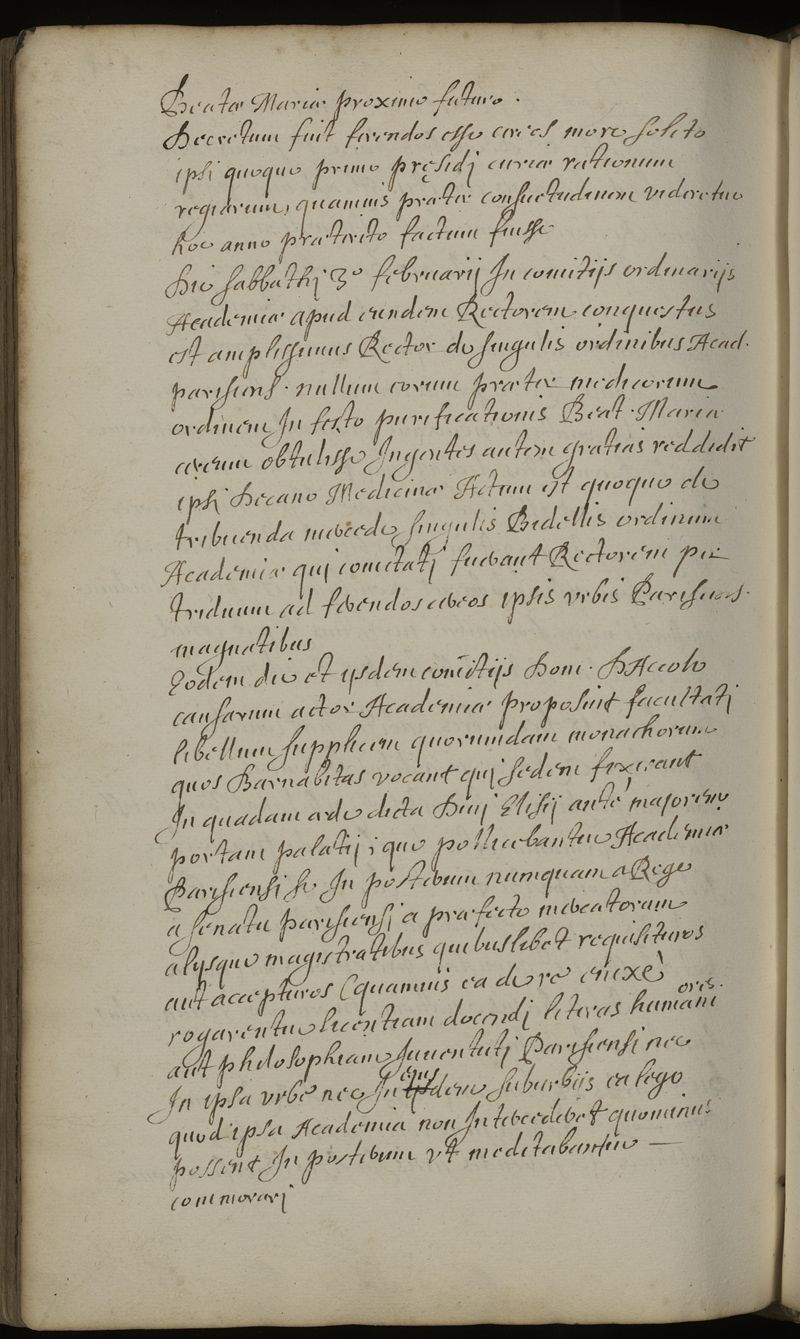 Beatæ Mariæ proximo futuro.
Decretum fuit ferendos esse cereos more solito
ipsi quoque primo præsidj curiæ rationum
regiarum, quamuis præter consuetudinem videretur
hoc anno præterito factum fuisse
Die sabbathj 3º februarij In comitijs ordinarijs
Academiæ apud eundem Rectorem conquestus
est amplissimus Rector de singulis ordinibus Acad.
parisiens. nullum eorum præter medicorum
ordinem In festo purificationis Beat. Mariæ
cereum obtulisse Ingentes autem gratias reddidit
ipsj Decano Medicinæ Actum est quoque de
tribuenda mercede singulis Bidellis ordinum
Academiæ quj comitatj fuerant Rectorem per
triduum ad ferendos cereos ipsis vrbis Parisiens.
magnatibus
Eodem die et ijsdem comitijs Dom. DAcole
causarum actor Academiæ proposuit facultatj
libellum supplicem quorumdam monachorum
quos Barnabitas vocant quj sedem fixerant
In quadam æde dicta Diuj Elisij ante majorem
portam palatij; quo pollicebantur Academiæ
Parisiensi se In posterum numquam a Rege
a senatu parisiensj a præfecto mercatorum
alysque magistratibus quibuslibet requisituros
aut accepturos (quamuis ea de re enixè
rogarentur licentiam docendj literas humaniores.
aut philosophiam Juuentutj Parisiensi nec
In ipsa vrbe nec In eiusdem suburbiis ea lege
quod ipsa Academia non Intercederet quominus
possent In posterum vt meditabantur —
commorarj